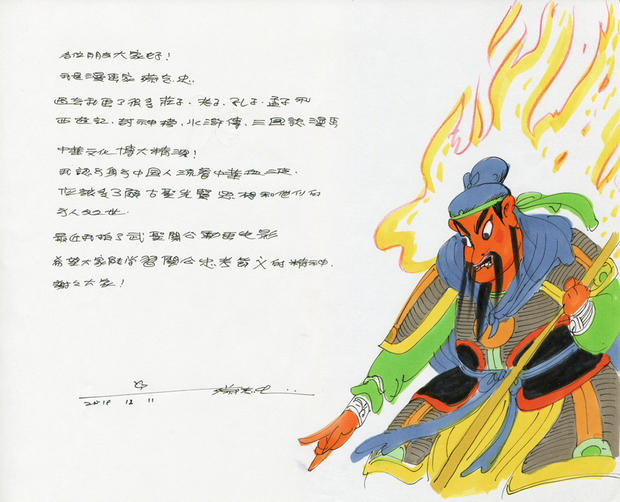 各位朋友大家好!
我是漫畫家蔡志忠.
過去我畫了很多莊子.老子.孔子.孟子和
西遊記.封神榜.水滸傳.三國誌漫畫
中華文化博大精深!
我認為身為中國人流著中華血液.
應該多了解古聖先賢思想和他們的
為人处世.
最近我拍了武聖關公動畫电影
希望大家能学習關公忠孝節义的精神.
謝谢大家!
蔡志忠..
2019 12 11